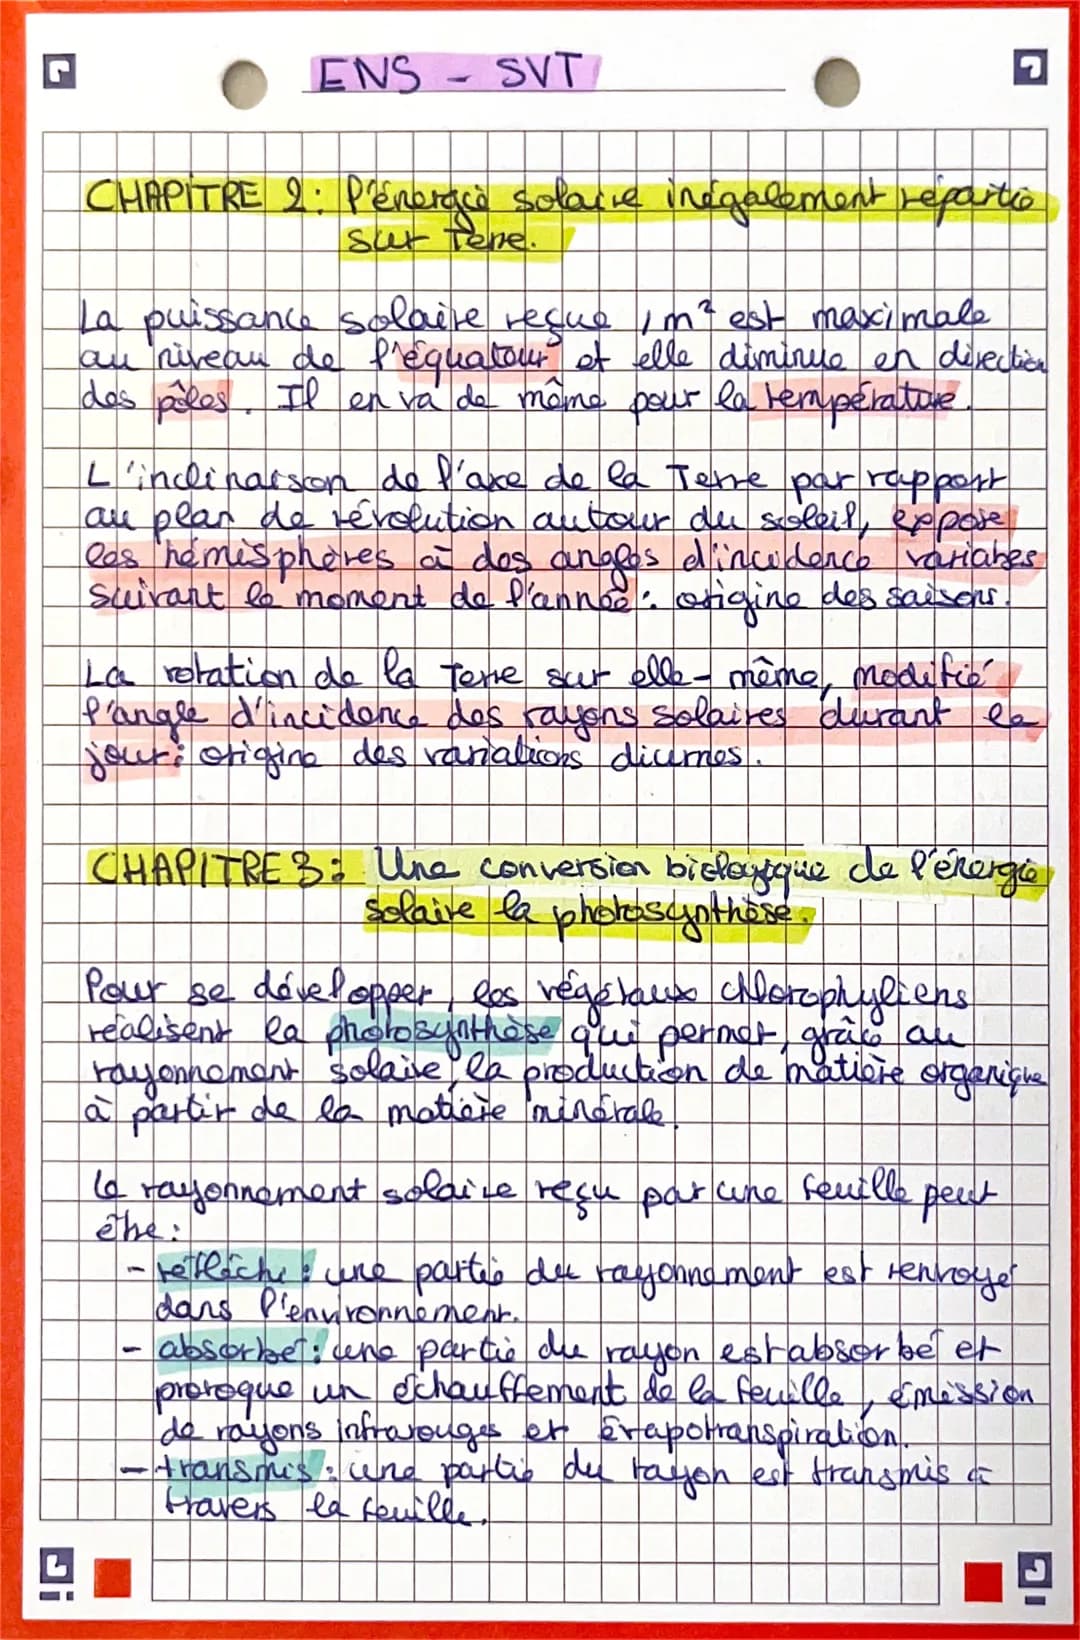 ENS - SVT
CHAPITRE 2: l'énergie solaire inégalement répartie
sur Terre.
La puissance solaire reçue / m² est maximale
au niveau de l'équateur et elle diminue en direction
des pôles. Il en va de même pour la température.
L'inclinaison de l'axe de la Terre par rapport
au plan de révolution autour du soleil, expose
les hémisphères à des angles d'incidence variables
suivant le moment de l'année : origine des saisons.
La rotation de la Terre sur elle-même, modifié
l'angle d'incidence des rayons solaires durant le
jour : origine des variations diurnes.
CHAPITRE 3 : Une conversion biologique de l'énergie
solaire la photosynthèse.
Pour se développer, les végétaux chlorophyliens
réalisent la photosynthèse qui permet, grâce au
rayonnement solaire, la production de matière organique
à partir de la matière minérale.
Le rayonnement solaire reçu par une feuille peut
être :
- réfléchi : une partie du rayonnement est renvoyé
dans l'environnement.
- absorbé : une partie du rayon est absorbé et
provoque un échauffement de la feuille, émission
de rayons infrarouges et évapotranspiration.
- transmis : une partie du rayon est transmis à
travers la feuille.